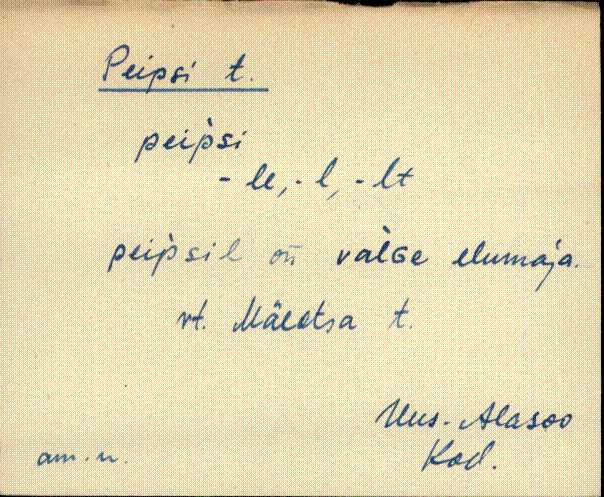 Peipsi t.
peip̀si
- le, - l, - lt
peip̀sil on̄ vaĺGe elumaja.
vt. Mäeotsa t.
Uus-Alasoo
am. n. Kod.